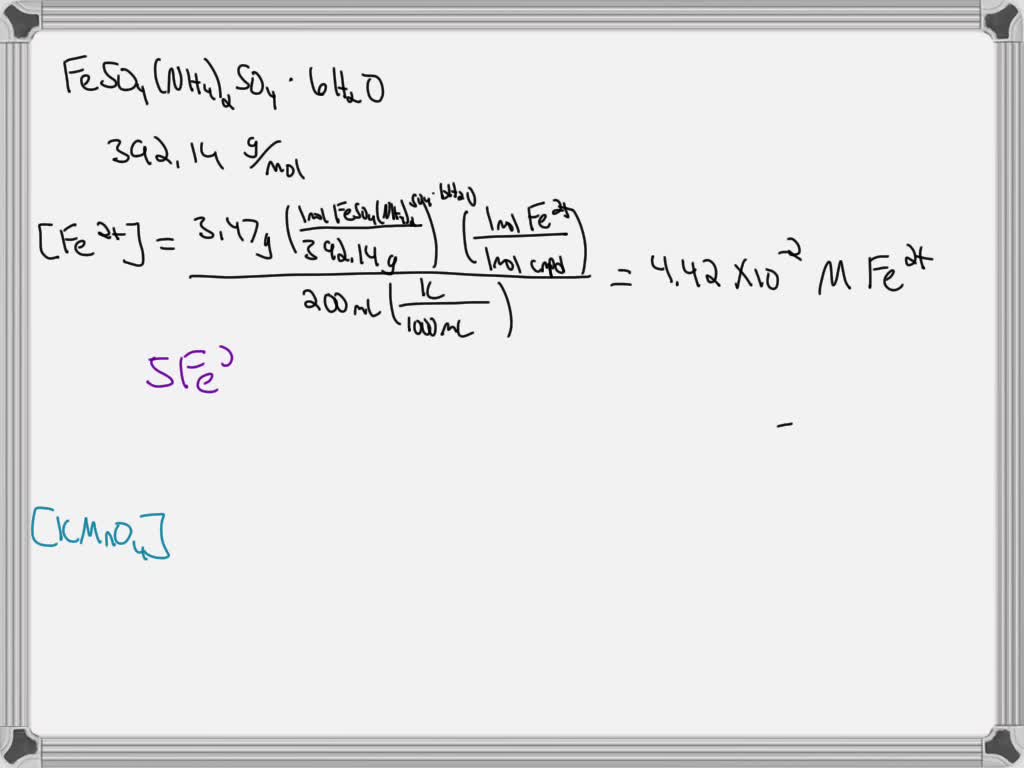 FeSO₄(NH₄)₂SO₄ · 6H₂O
392.14 g/mol
[Fe²⁺] = 3.47g (1mol FeSO₄(NH₄)₂SO₄·6H₂O / 392.14g) (1mol Fe²⁺ / 1mol cmpd) / 200mL (1L / 1000mL) = 4.42 × 10⁻² M Fe²⁺
5Fe
-
[KMnO₄]